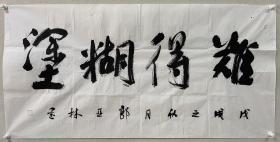 難得糊塗
戊戌之秋月郭亚林